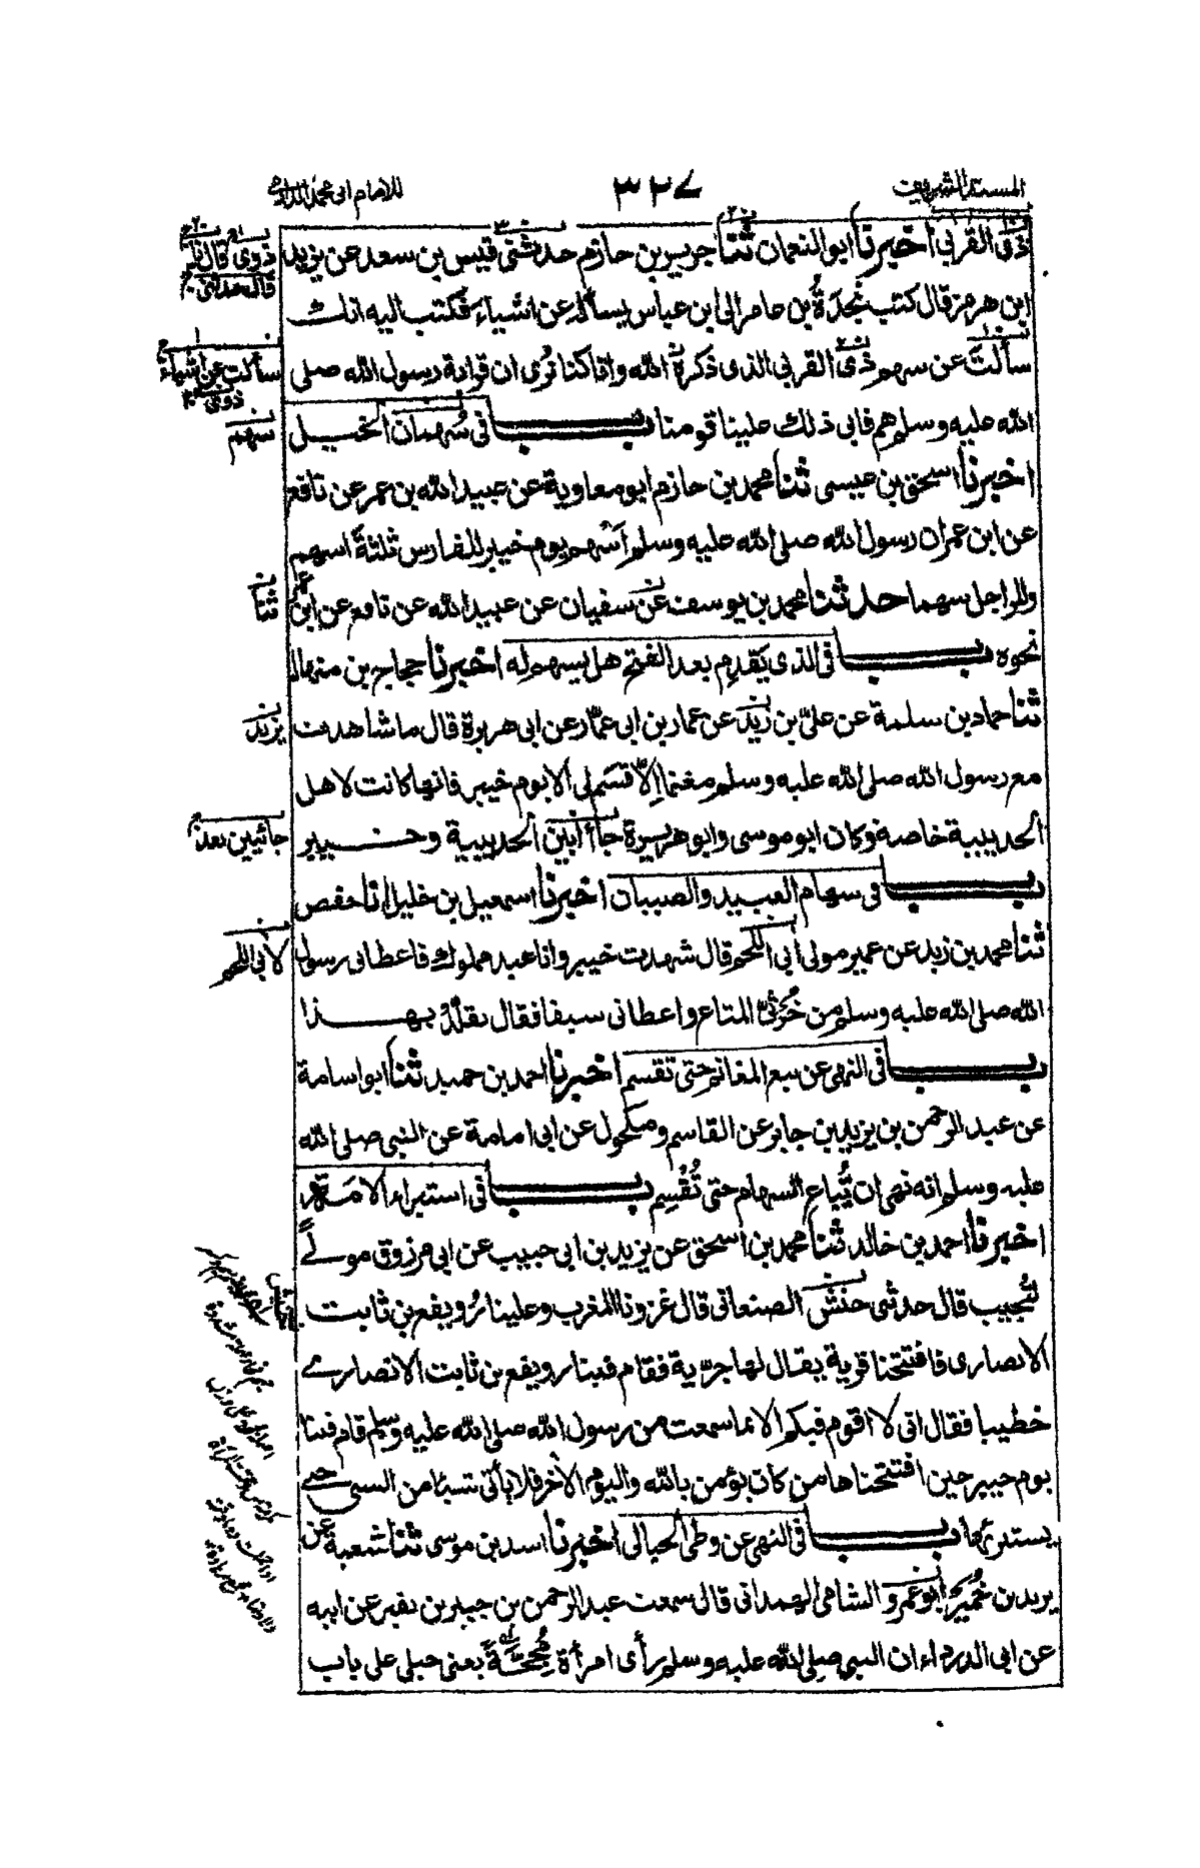 المسند الشريف
٣٢٧
للامام ابي محمد الدارمي
ذي القربى اخبرنا ابو النعمان ثنا جرير بن حازم حدثني قيس بن سعد عن يزيد
ابن هرمز قال كتب نجدة بن عامر الى ابن عباس يسأله عن اشياء فكتب اليه انك
سألت عن سهم ذي القربى الذي ذكره الله وانا كنا نرى ان قرابة رسول الله صلى
الله عليه وسلم هم فابى ذلك علينا قومنا باب في سهمان الخيل
اخبرنا اسحق بن عيسى ثنا محمد بن خازم ابو معاوية عن عبيد الله بن عمر عن نافع
عن ابن عمر ان رسول الله صلى الله عليه وسلم اسهم يوم خيبر للفارس ثلثة اسهم
وللراجل سهما حدثنا محمد بن يوسف عن سفيان عن عبيد الله عن نافع عن ابن عمر
نحوه باب في الذي يقدم بعد الفتح هل يسهم له اخبرنا حجاج بن منهال
ثنا حماد بن سلمة عن علي بن زيد عن عمار بن ابي عمار عن ابي هريرة قال ما شاهدت
مع رسول الله صلى الله عليه وسلم مغنما الا قسم لي الا يوم خيبر فانها كانت لاهل
الحديبية خاصة وكان ابو موسى وابو هريرة جاأ ابين الحديبية وخيبر
باب في سهام العبيد والصبيان اخبرنا اسمعيل بن خليل انا حفص
ثنا محمد بن زيد عن عمير مولى ابي اللحم قال شهدت خيبر وانا عبد مملوك فاعطاني رسول
الله صلى الله عليه وسلم من خرثي المتاع واعطاني سيفا فقال تقلد بهذا
باب في النهي عن بيع المغانم حتى تقسم اخبرنا احمد بن حميد ثنا ابو اسامة
عن عبد الرحمن بن يزيد بن جابر عن القاسم ومكحول عن ابي امامة عن النبي صلى الله
عليه وسلم انه نهى ان تباع السهام حتى تقسم باب في استبراء الامة
اخبرنا احمد بن خالد ثنا محمد بن اسحق عن يزيد بن ابي حبيب عن ابي مرزوق مولى
لتجيب قال حدثني حنش الصنعاني قال غزونا المغرب وعلينا رويفع بن ثابت
الانصاري فافتتحنا قرية يقال لها جربة فقام فينا رويفع بن ثابت الانصاري
خطيبا فقال اني لا اقوم فيكم الا بما سمعت من رسول الله صلى الله عليه وسلم قام فينا
يوم خيبر حين افتتحناها من كان يؤمن بالله واليوم الآخر فلا يأتي شيئا من السبي حتى
يستبرئها باب في النهي عن وطي الحبالى اخبرنا اسد بن موسى ثنا شعبة عن
يزيد بن خمير ابو عمرو الشامي الهمداني قال سمعت عبد الرحمن بن جبير بن نفير عن ابيه
عن ابي الدرداء ان النبي صلى الله عليه وسلم رأى امرأة مجحة يعني حبلى على باب
ذوي قال
قال حدثني
سألت عن اشياء
ذوي
سهم
ثنا
يزيد
جائيين بعد
لآبي اللحم